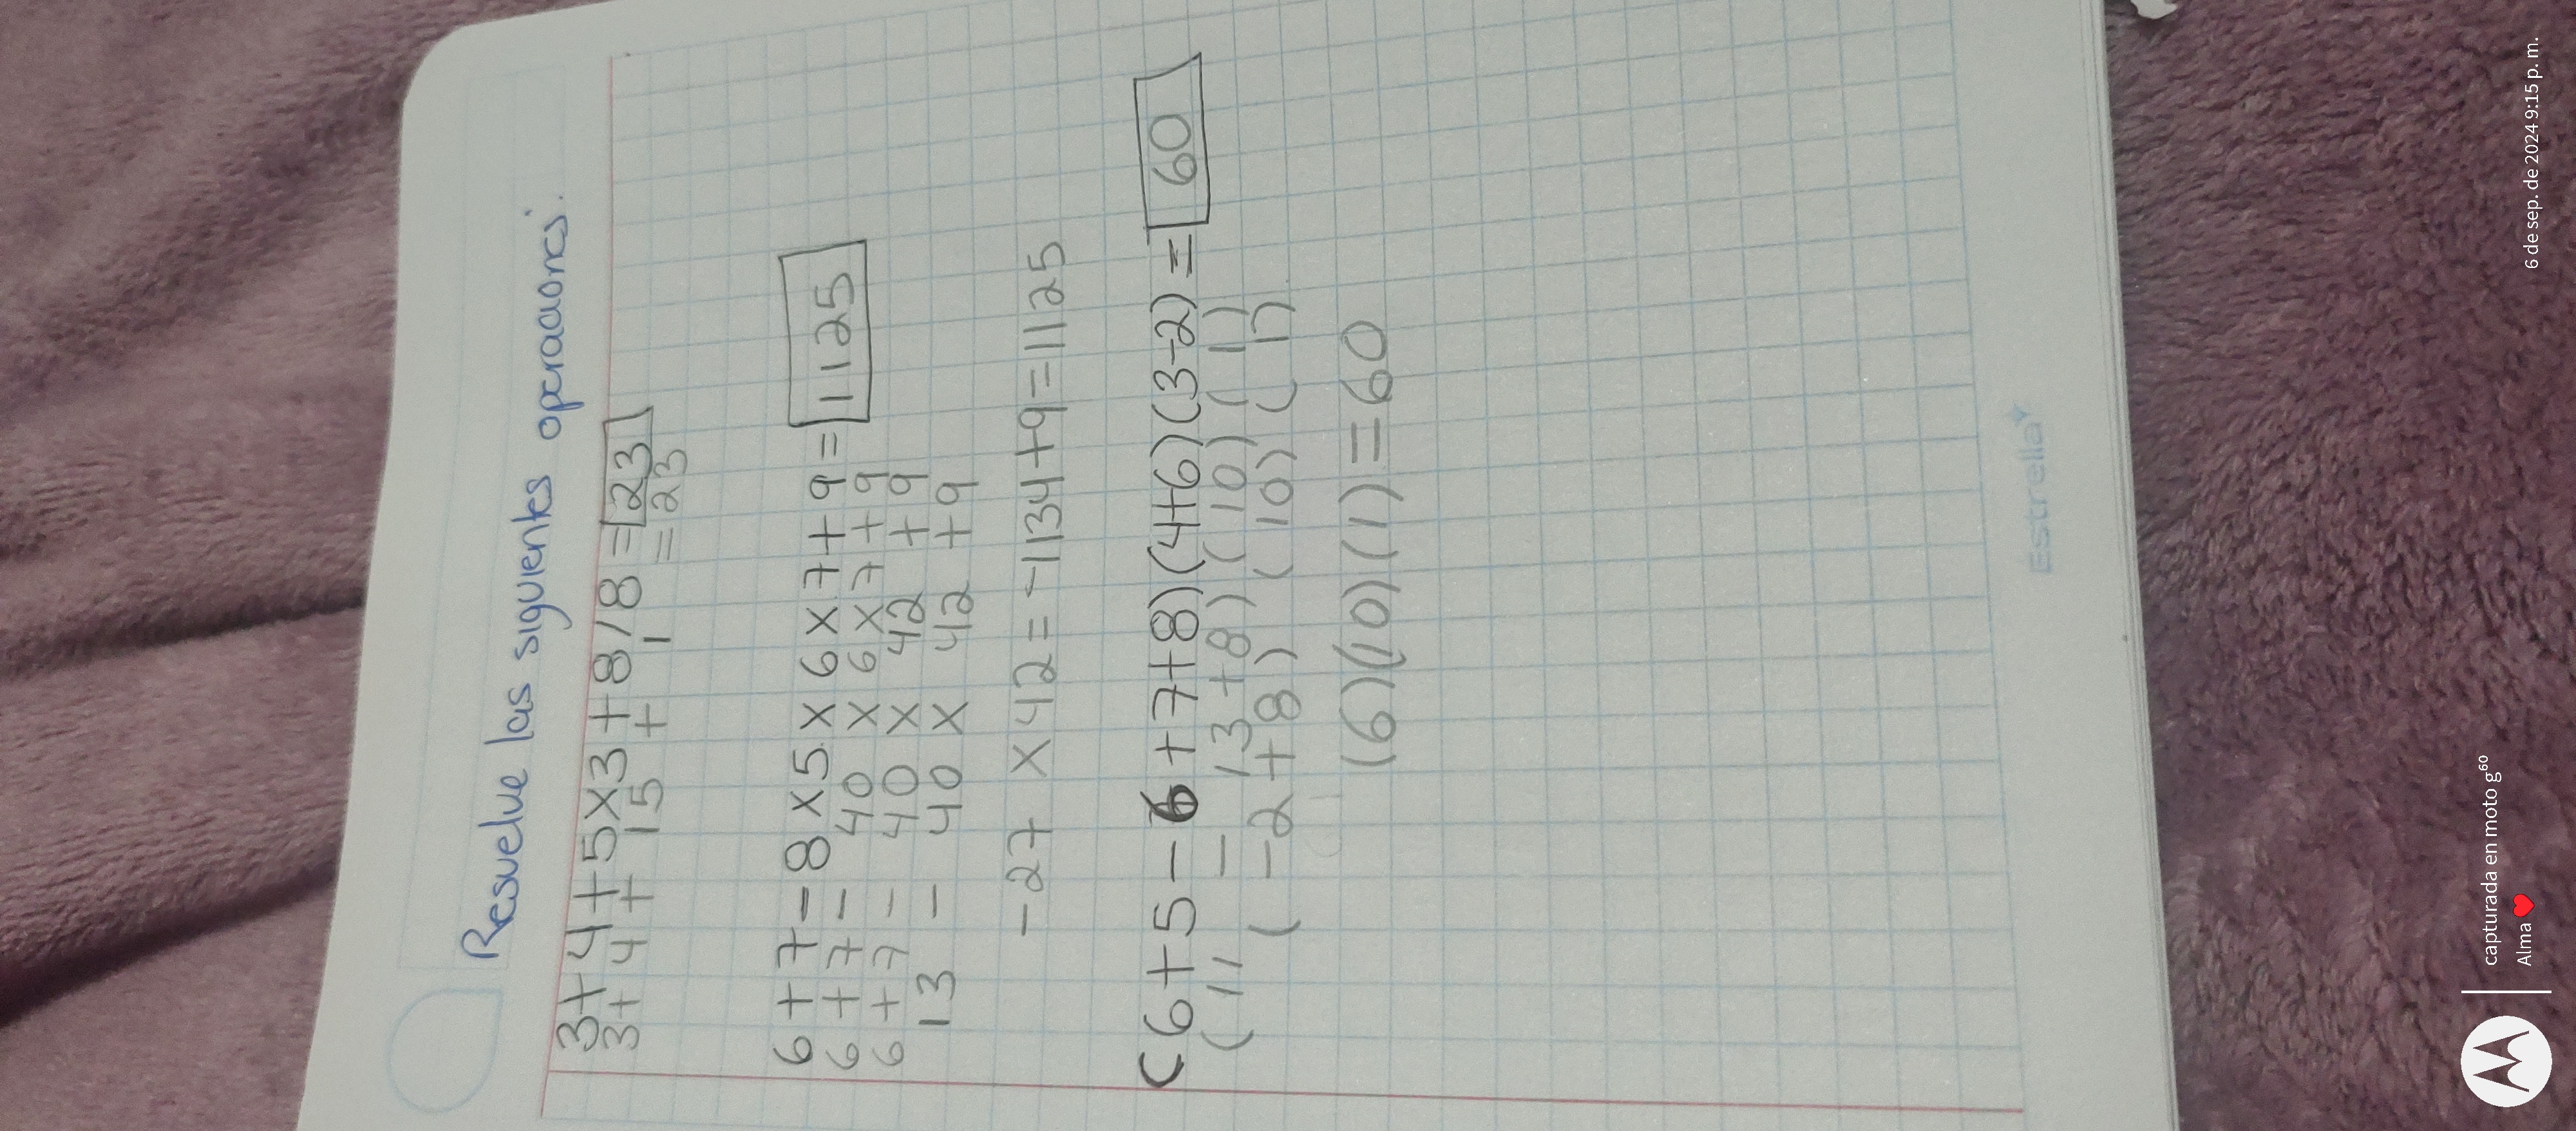 Resuelve las siguientes operaciones:
3+4+5×3+8/8=23
3+4+ 15 + 1 =23
6+7-8×5×6×7+9=1125
6+7- 40 ×6×7+9
6+7- 40 × 42 +9
13 - 40 × 42 +9
-27 ×42=-1134+9=1125
(6+5-6+7+8)(4+6)(3-2)=60
(11 - 13+8)(10)(1)
(-2+8) (10)(1)
(6)(10)(1)=60
Estrella
capturada en moto g⁶⁰
Alma ❤️
6 de sep. de 2024 9:15 p. m.